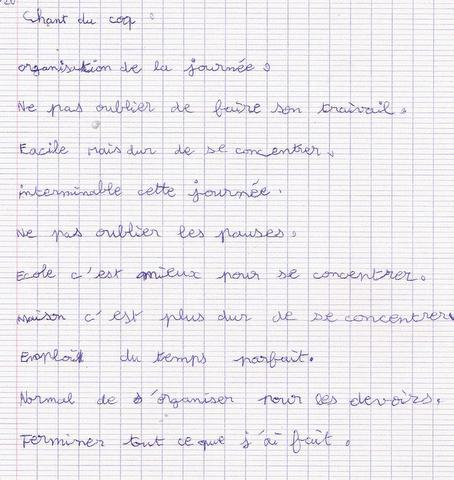 Chant du coq :
organisation de la journée.
Ne pas oublier de faire son travail.
Facile mais dur de se concentrer.
interminable cette journée.
Ne pas oublier les pauses.
Ecole c'est mieux pour se concentrer.
Maison c'est plus dur de se concentrer.
Emploi du temps parfait.
Normal de s'organiser pour les devoirs.
Terminer tout ce que j'ai fait.